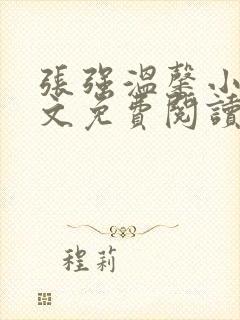 張強溫馨小
文免費閱讀
程莉